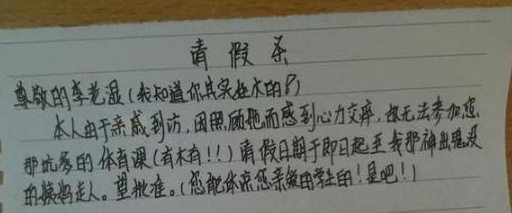 请假条
尊敬的李老湿(我知道你其实姓水的！)
本人由于亲戚到访,因照顾她而感到心力交瘁,故无法参加您
那坑爹的体育课(有木有!!)请假日期于即日起至我那神出鬼没
的姨妈走人。望批准。(您能体谅您亲爱的学生的!是吧!)